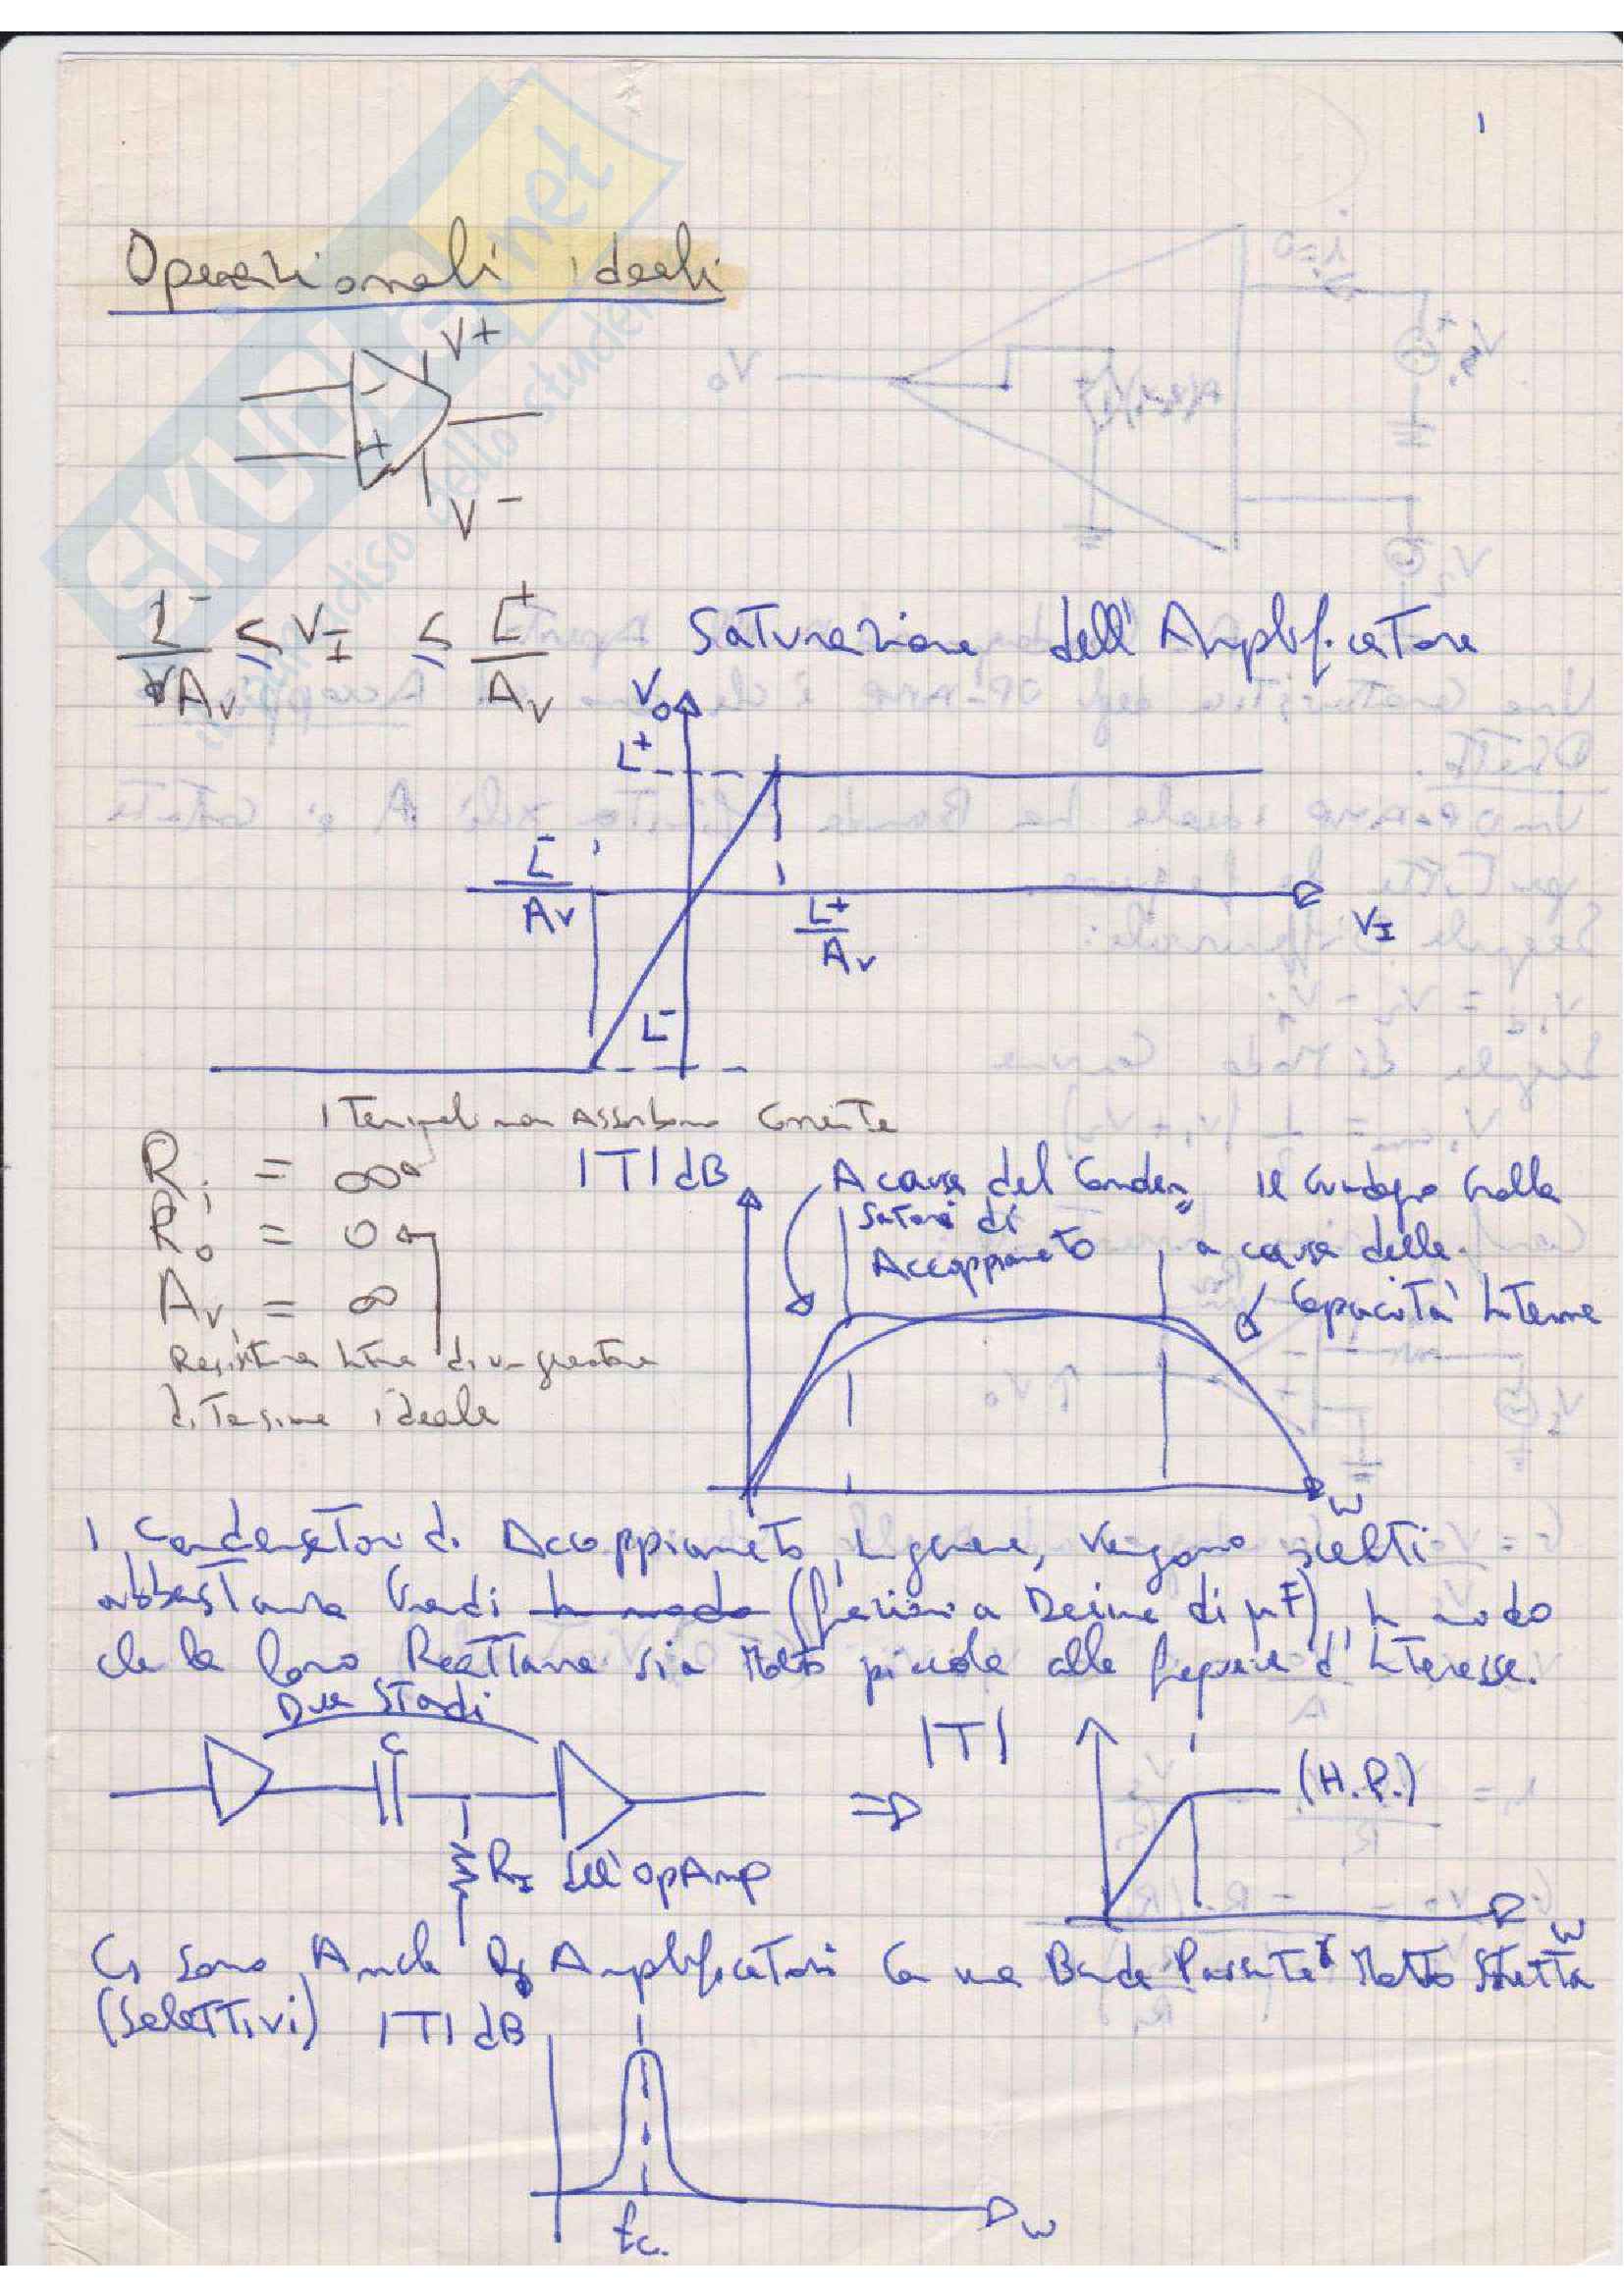 1
Operazionali ideali
V+
-
+
V-
L-/Av ≤ VI ≤ L+/Av Saturazione dell'Amplificatore
Vo
L+
L-/Av
L+/Av
VI
L-
I Terminali non Assorbono Corrente
Ri = ∞
Ro = 0
Av = ∞
Resistenza Interna di un generatore
di Tensione ideale
|T| dB
A causa del Conden
satori di
Accoppiamento
Il Guadagno Crolla
a causa delle
Capacità Interne
w
I Condensatori di Accoppiamento, In genere, Vengono scelti
abbastanza Grandi In modo (frazioni a Decine di μF), In modo
che la loro Reattanza sia Molto piccola alle frequenze d'Interesse.
Due Stadi
C
RI dell'OpAmp
⇒
|T|
(H.P.)
w
Ci sono Anche Amplificatori Con una Banda Passante Molto Stretta
(Selettivi) |T| dB
fc.
w
SKUOLA.net
il paradiso dello studente